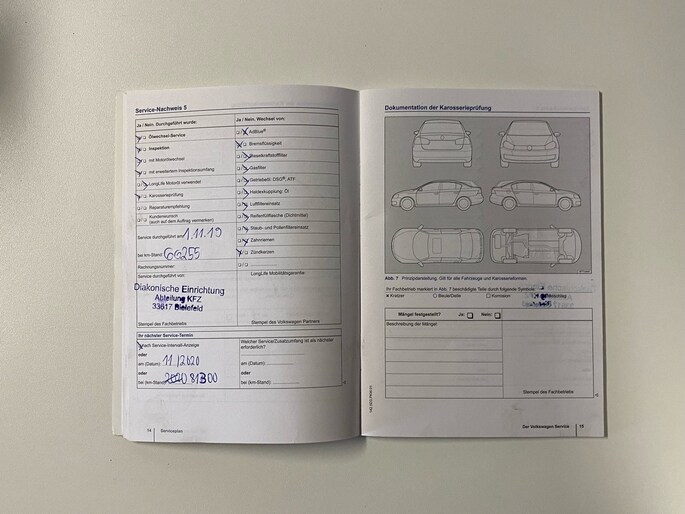 Service-Nachweis 5
Ja / Nein. Durchgeführt wurde:
Ölwechsel-Service
Inspektion
mit Motorölwechsel
mit erweitertem Inspektionsumfang
LongLife Motoröl verwendet
Karosserieprüfung
Reparaturempfehlung
Kundenwunsch
(auch auf dem Auftrag vermerken)
Service durchgeführt am: 1.11.19
bei km-Stand: 66255
Rechnungsnummer:
Service durchgeführt von:
Diakonische Einrichtung
Abteilung KFZ
33617 Bielefeld
Stempel des Fachbetriebs
Ja / Nein. Wechsel von:
AdBlue®
Bremsflüssigkeit
Dieselkraftstofffilter
Gasfilter
Getriebeöl: DSG®, ATF
Haldexkupplung: Öl
Luftfiltereinsatz
Reifenfüllflasche (Dichtmittel)
Staub- und Pollenfiltereinsatz
Zahnriemen
Zündkerzen
LongLife Mobilitätsgarantie:
Stempel des Volkswagen Partners
Ihr nächster Service-Termin:
nach Service-Intervall-Anzeige
oder
am (Datum): 11/2020
oder
bei (km-Stand): 81300
Welcher Service/Zusatzumfang ist als nächster
erforderlich?
am (Datum):
oder
bei (km-Stand):
14 Serviceplan
Dokumentation der Karosserieprüfung
Abb. 7 Prinzipdarstellung. Gilt für alle Fahrzeuge und Karosserieformen.
Ihr Fachbetrieb markiert in Abb. 7 beschädigte Teile durch folgende Symbole:
Kratzer Beule/Delle Korrosion
Mängel festgestellt? Ja: Nein:
Beschreibung der Mängel:
Stempel des Fachbetriebs
Der Volkswagen Service 15